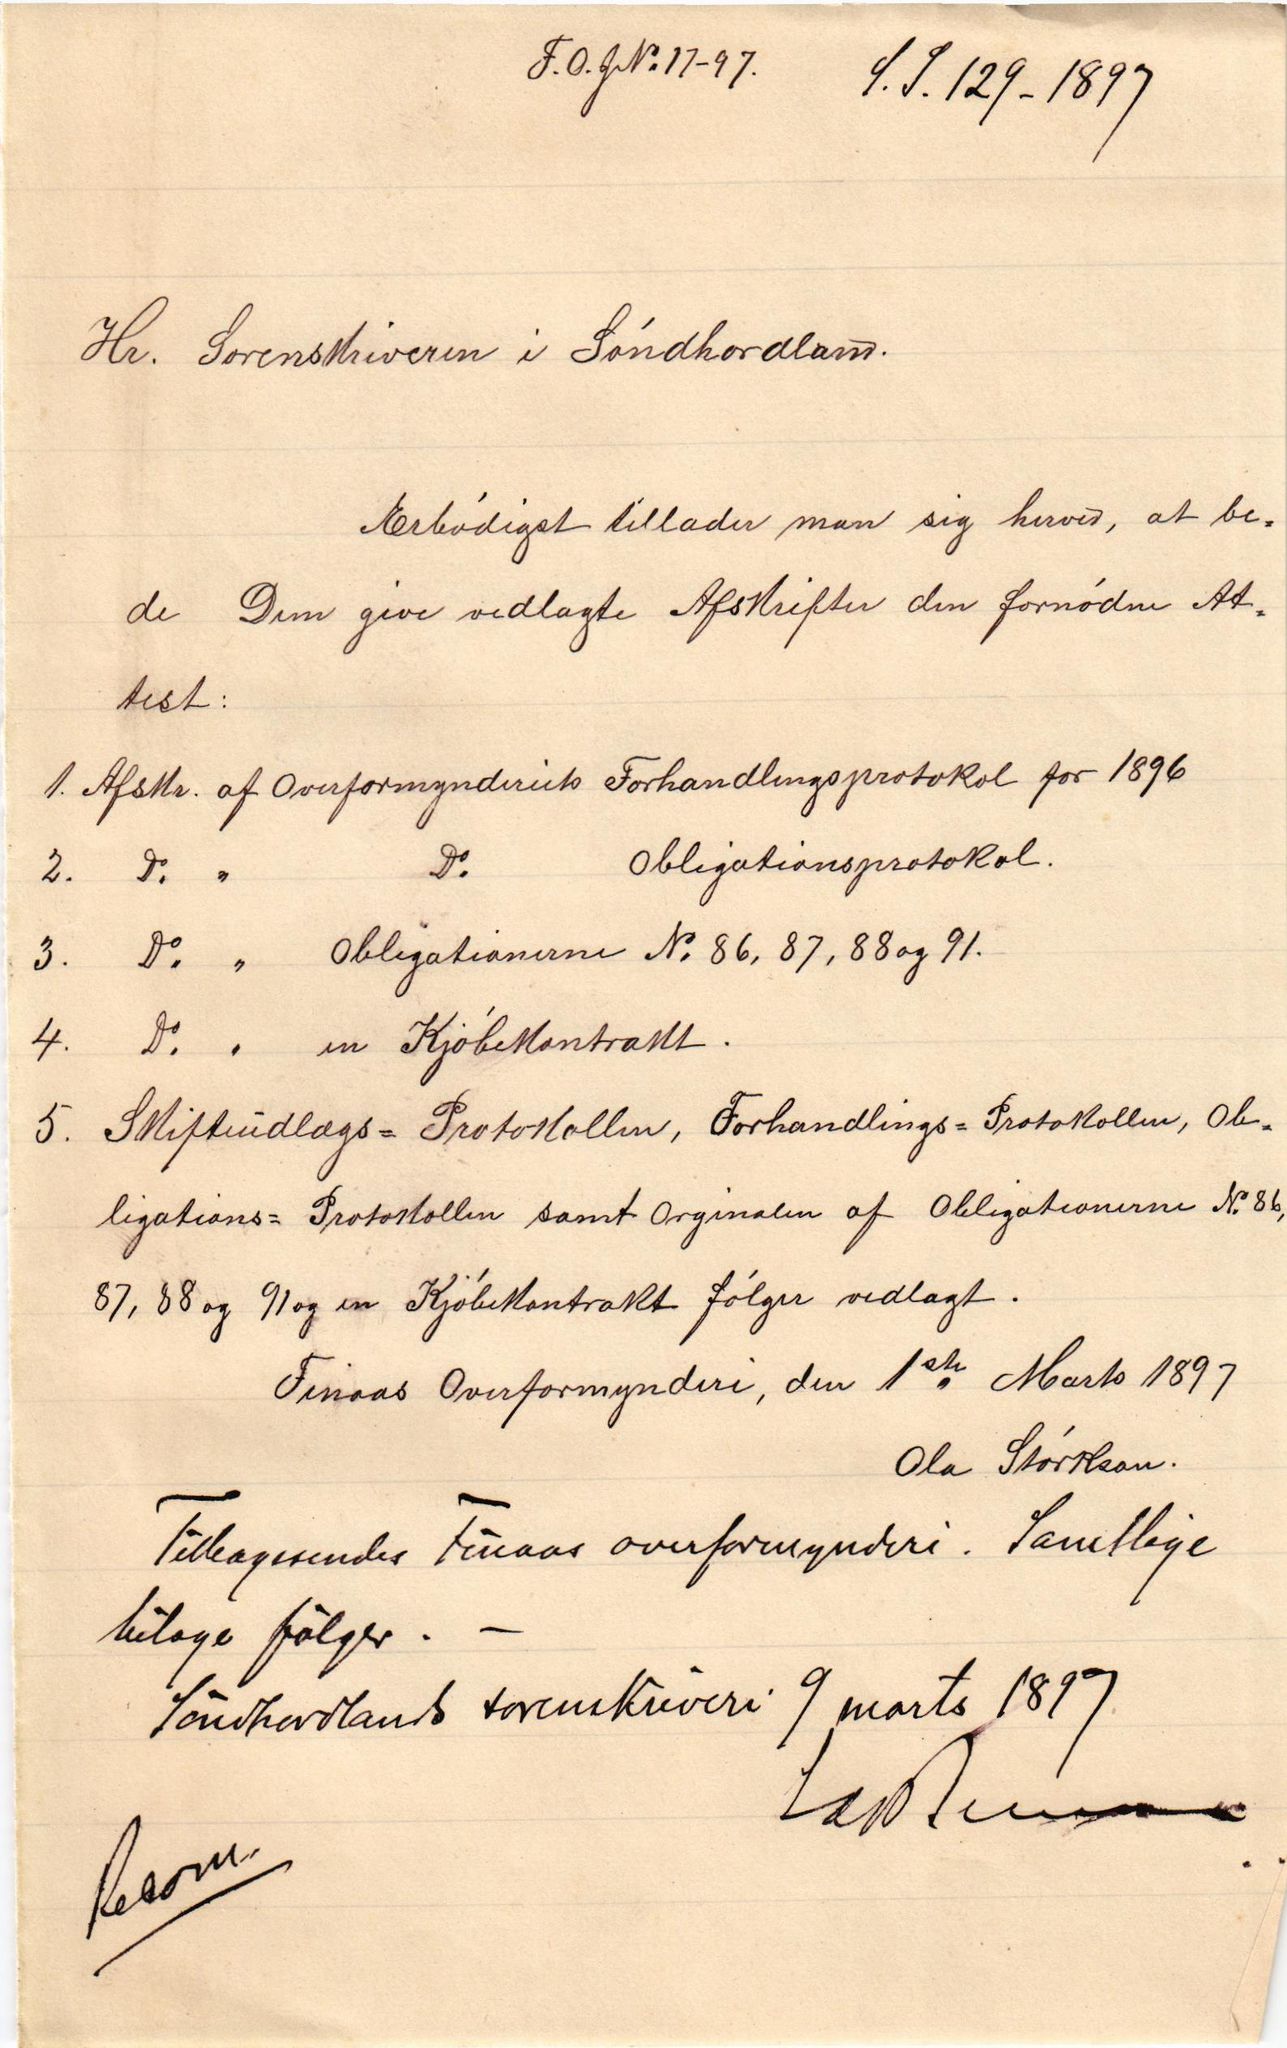 F.O.J.No. 17-97. S.S. 129-1897
Hr. Sorenskriveren i Söndhordland.
Ærbödigst tillader man sig herved, at be-
de Dem give vedlagte Afskrifter den fornödne At-
test:
1. Afskr. af Overformynderiets Forhandlingsprotokol for 1896
2. Do. " Do. Obligationsprotokol.
3. Do. " Obligationerne No. 86, 87, 88 og 91.
4. Do. " en Kjöbekontrakt.
5. Skifteudlægs= Protokollen, Forhandlings= Protokollen, Ob-
ligations= Protokollen samt Orginalen af Obligationerne No. 86,
87, 88 og 91 og en Kjöbekontrakt fölger vedlagt.
Finaas Overformynderi, den 1ste Marts 1897
Ola Störkson.
Tilbagesendes Finaas overformynderi. Samtlige
bilage fölger. —
Söndhordlands sorenskriveri 9 marts 1897
Recom.